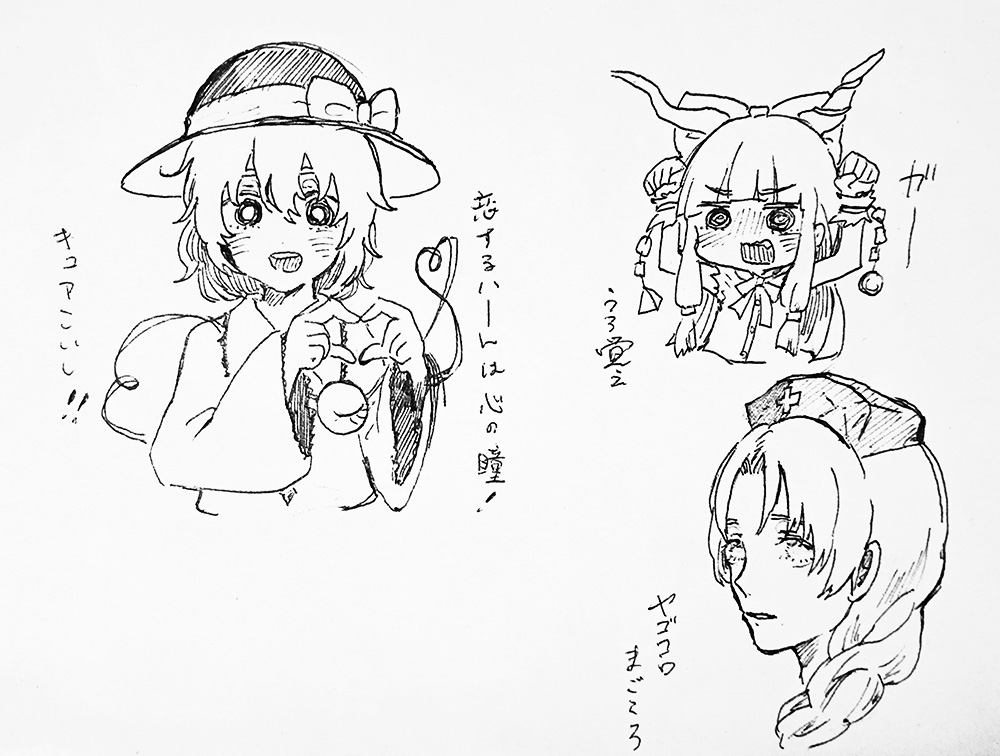 恋するハーんは心の瞳!
キュアこいし!!
ガー
うろ覚え
ヤゴコロ
まごころ